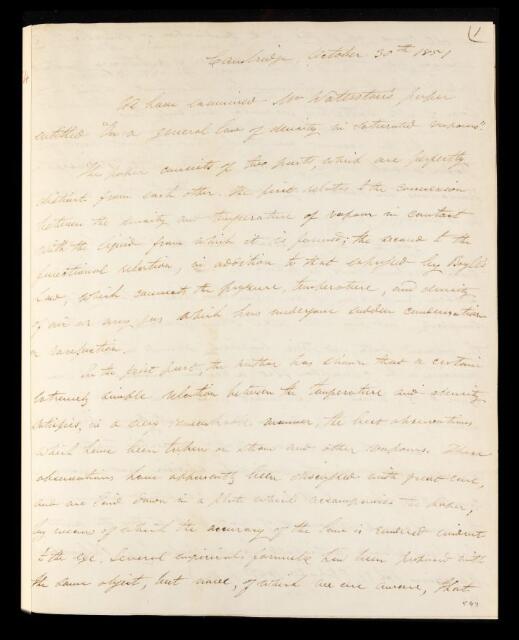 (1
Cambridge, October 30th 1851
We have examined Mr Waterston's paper
entitled "On a general law of density in saturated vapours".
The paper consists of two parts, which are perfectly
distinct from each other. The first relates to the connexion
between the density and temperature of vapour in contact
with the liquid from which it is formed; the second to the
functional relation, in addition to that expressed by Boyle's
Law, which connects the pressure, temperature, and density
of air or any gas which has undergone sudden condensation
or rarefaction.
In the first part, the author has shown that a certain
extremely simple relation between the temperature and density
satisfies, in a very remarkable manner, the best observations
which have been taken on steam and other vapours. These
observations have apparently been discussed with great care,
and are laid down in a plate which accompanies the paper,
by means of which the accuracy of the law is rendered evident
to the eye. Several empirical formulæ have been proposed with
the same object, but none, of which we are aware, that